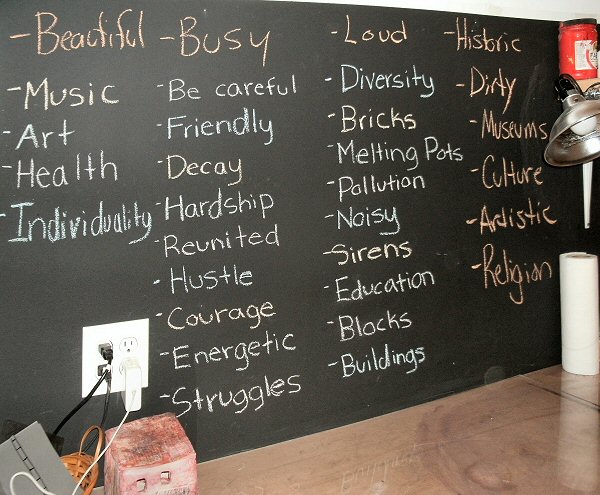 -Beautiful
-Music
-Art
-Health
-Individuality
-Busy
-Be careful
-Friendly
-Decay
-Hardship
-Reunited
-Hustle
-Courage
-Energetic
-Struggles
-Loud
-Diversity
-Bricks
-Melting Pots
-Pollution
-Noisy
-Sirens
-Education
-Blocks
-Buildings
-Historic
-Dirty
-Museums
-Culture
-Artistic
-Religion